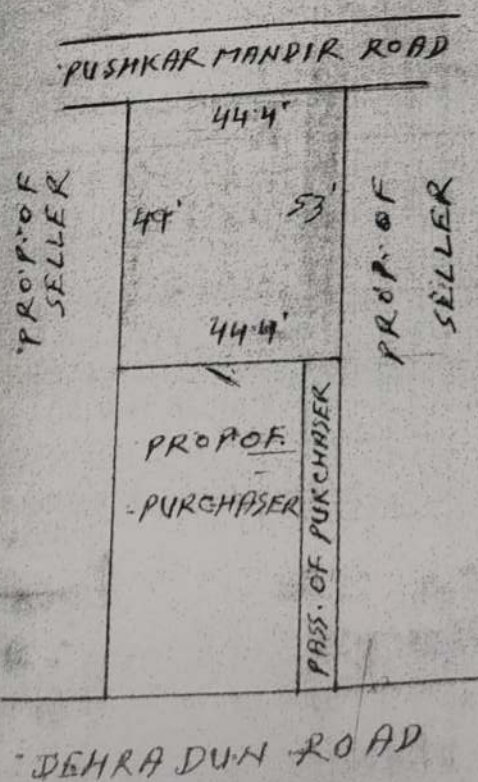 PUSHKAR MANDIR ROAD
44.4'
PROP. OF
SELLER
49'
53'
PROP. OF
SELLER
44.4'
PROP OF
PURCHASER
PASS. OF PURCHASER
DEHRADUN ROAD